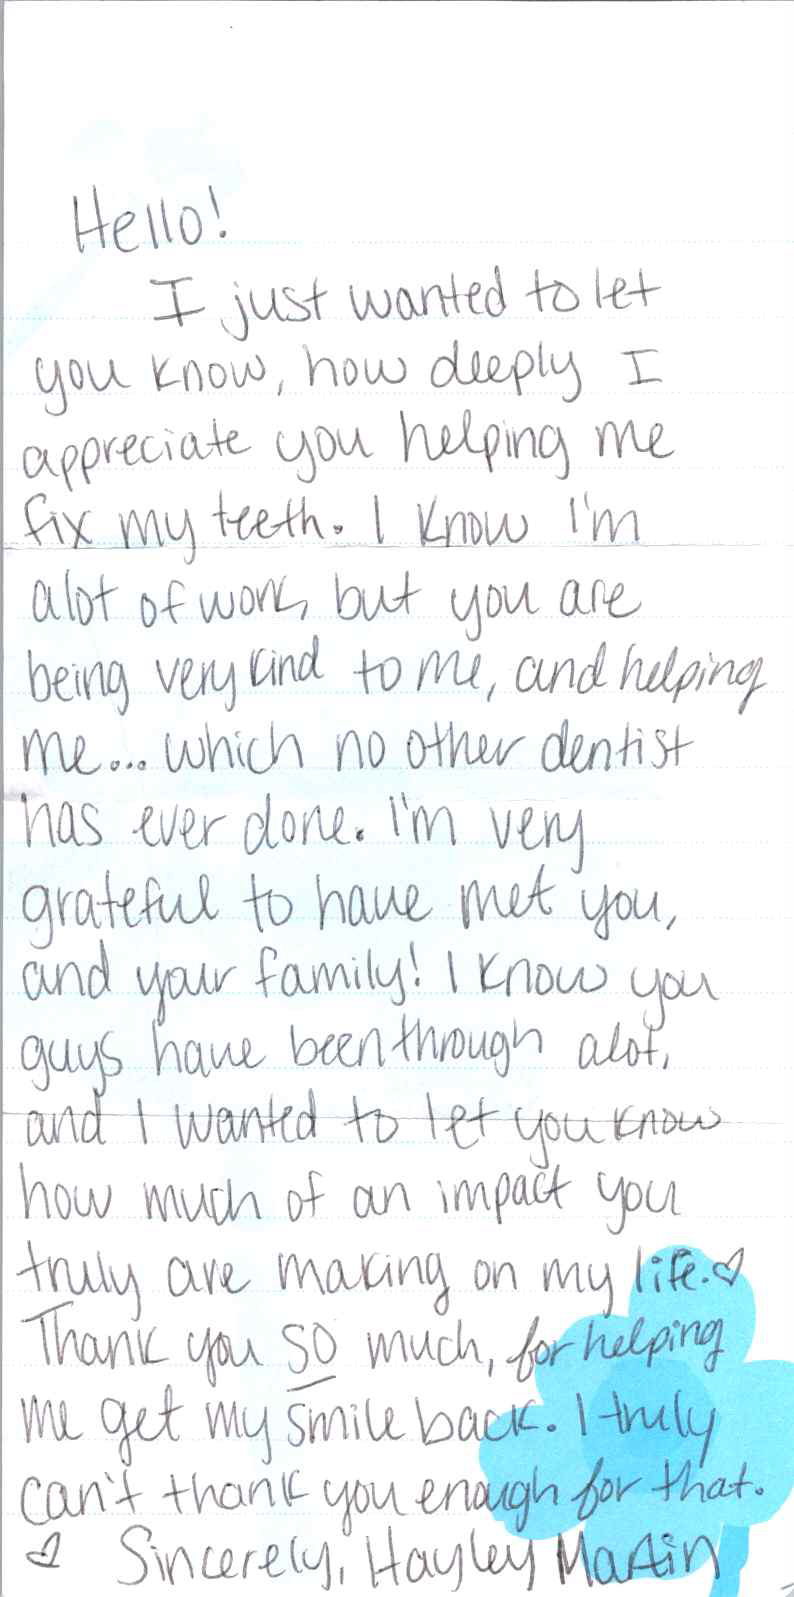 Hello!
I just wanted to let
you know, how deeply I
appreciate you helping me
fix my teeth. I know I'm
alot of work, but you are
being very kind to me, and helping
me... which no other dentist
has ever done. I'm very
grateful to have met you,
and your family! I know you
guys have been through alot,
and I wanted to let you know
how much of an impact you
truly are making on my life.♡
Thank you so much, for helping
me get my smile back. I truly
can't thank you enough for that.
♡ Sincerely, Hayley Martin